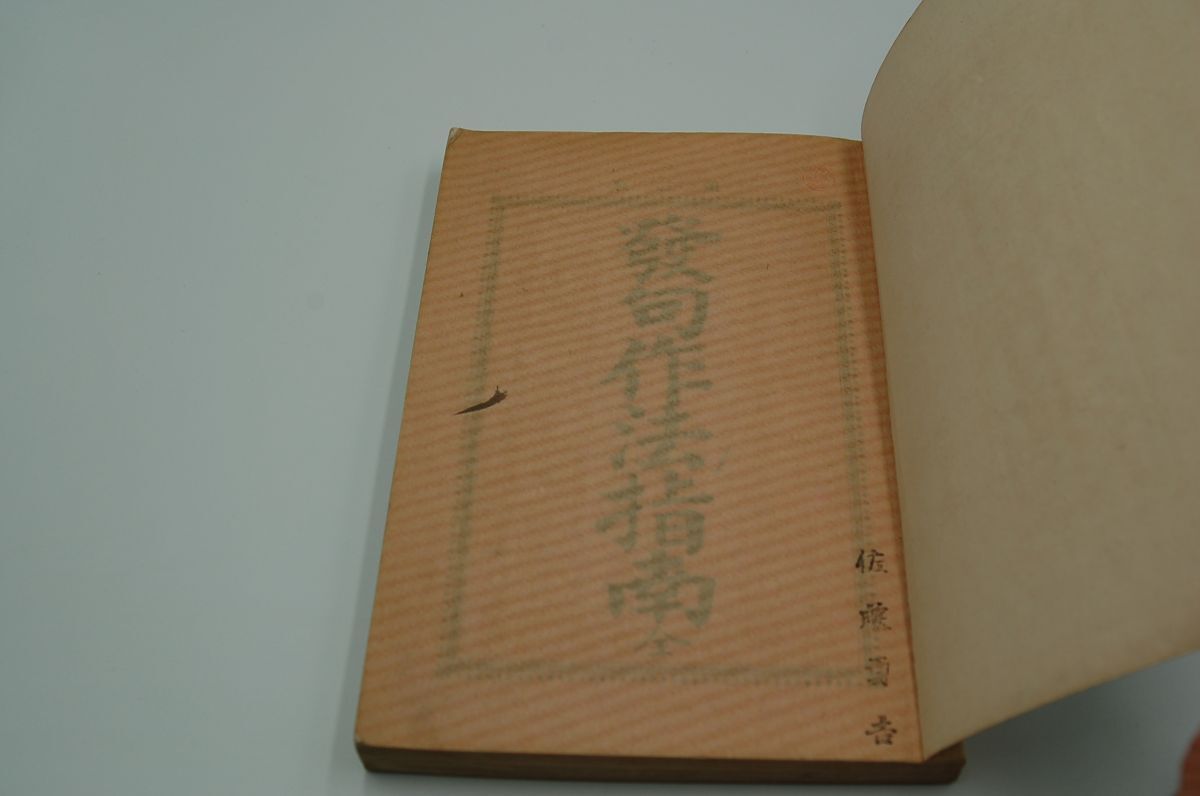 發句作法指南
全
佐藤酉吉